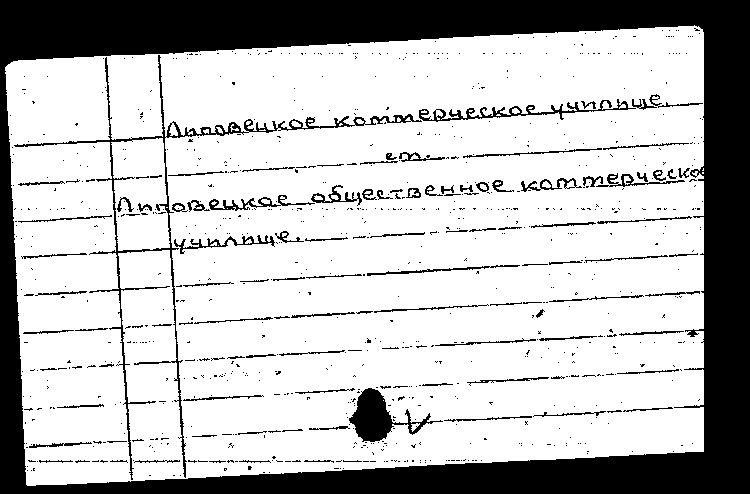 Липовецкое коммерческое училище.
см.
Липовецкое общественное коммерческое
училище.
V